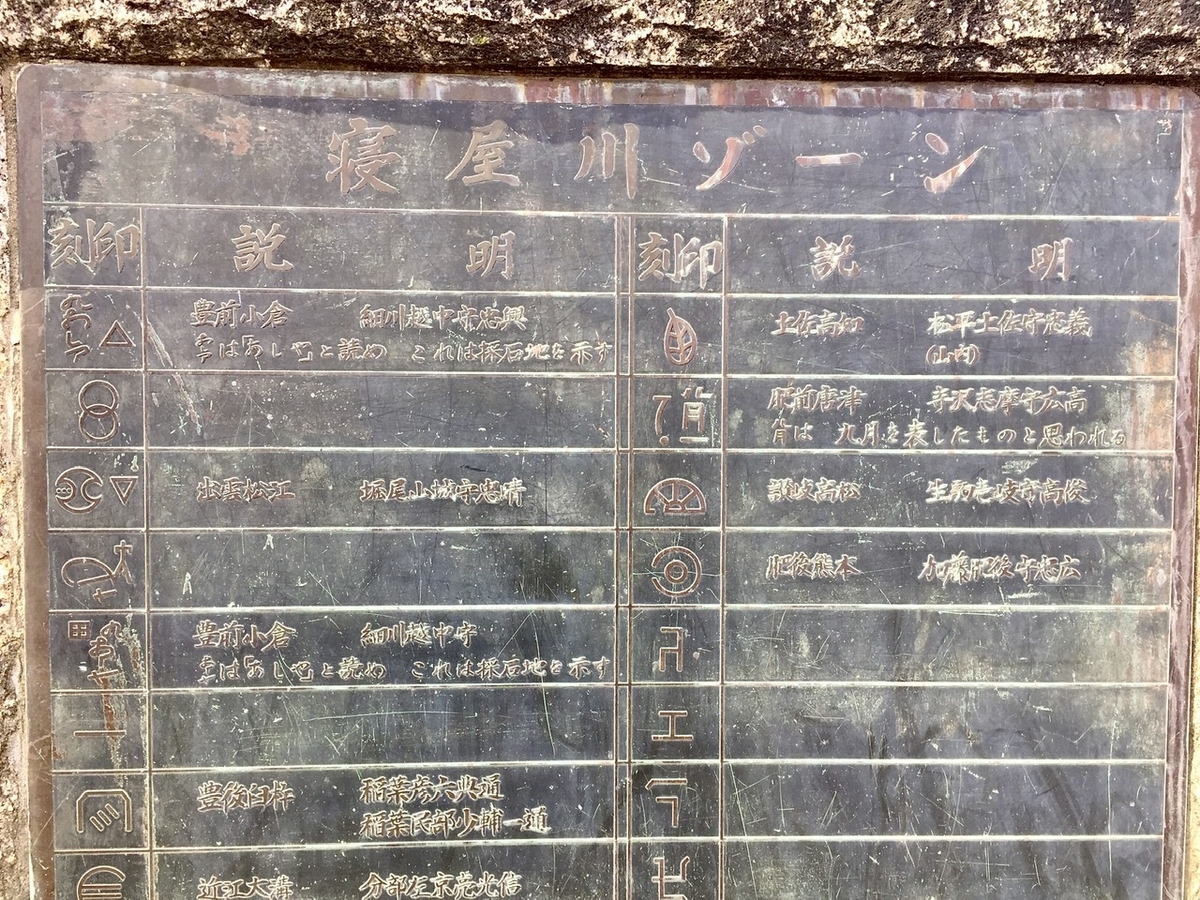 寝屋川ゾーン
刻印 説明
豊前小倉 細川越中守忠興
は「あしや」と読め これは採石地を示す
出雲松江 堀尾山城守忠晴
豊前小倉 細川越中守
は「あしや」と読め これは採石地を示す
豊後臼杵 稲葉彦六典通
稲葉民部少輔一通
近江大溝 分部左京亮光信
刻印 説明
土佐高知 松平土佐守忠義
(山内)
肥前唐津 寺沢志摩守広高
は 九月を表したものと思われる
讃岐高松 生駒壱岐守高俊
肥後熊本 加藤肥後守忠広